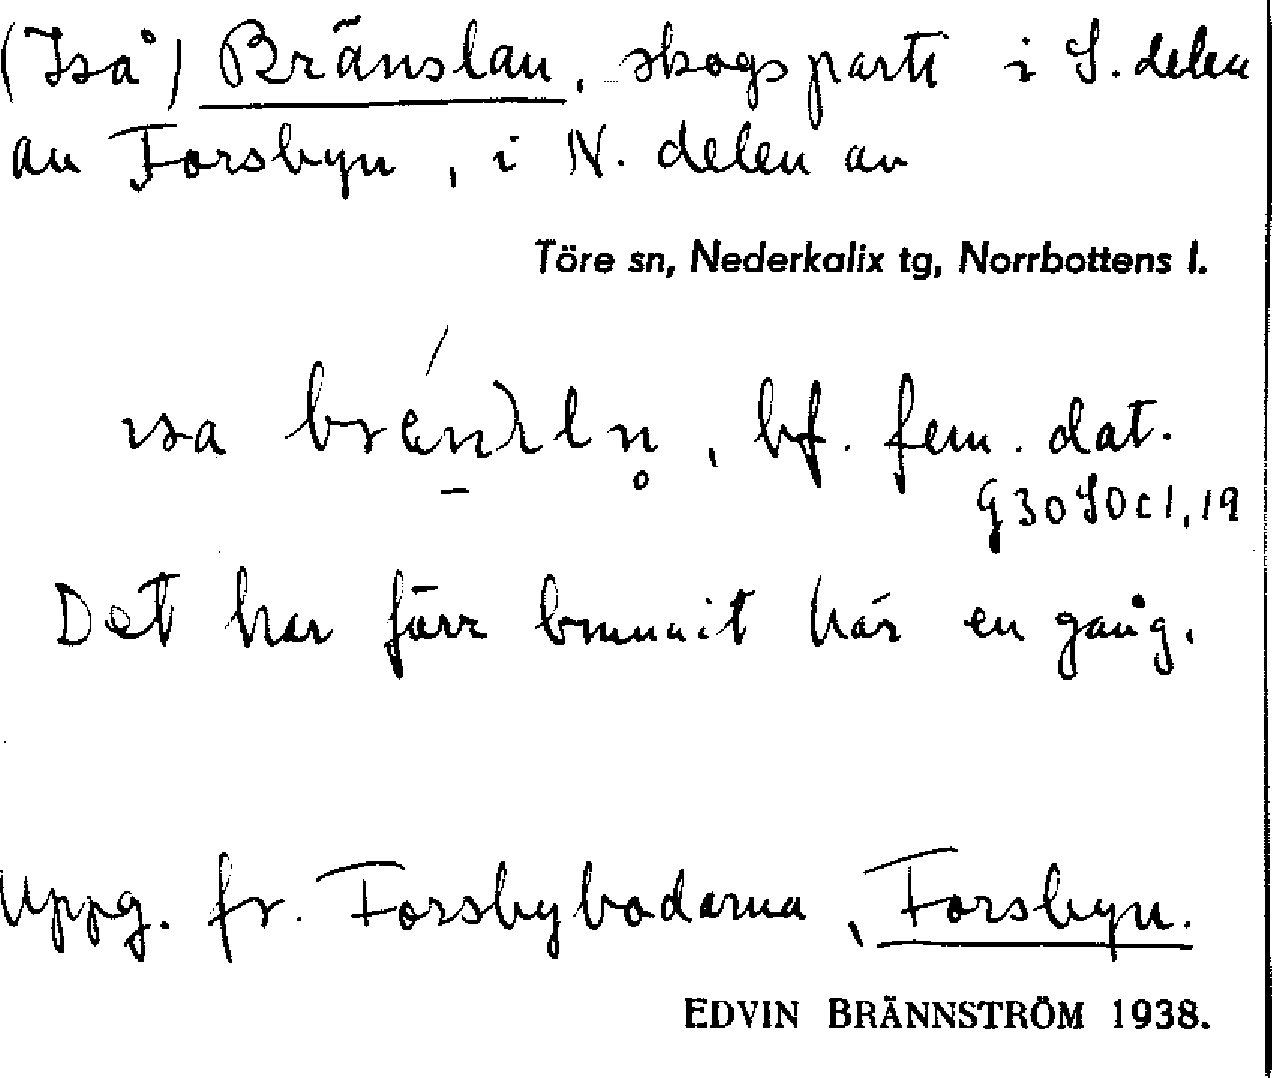 (Iså) Bränslan, skogsparti i S. delen
av Forsbyn, i N. delen av
Töre sn, Nederkalix tg, Norrbottens l.
bf. fem. dat.
Det har förr brunnit här en gång.
Uppg. fr. Forsbybodarna, Forsbyn.
EDVIN BRÄNNSTRÖM 1938.